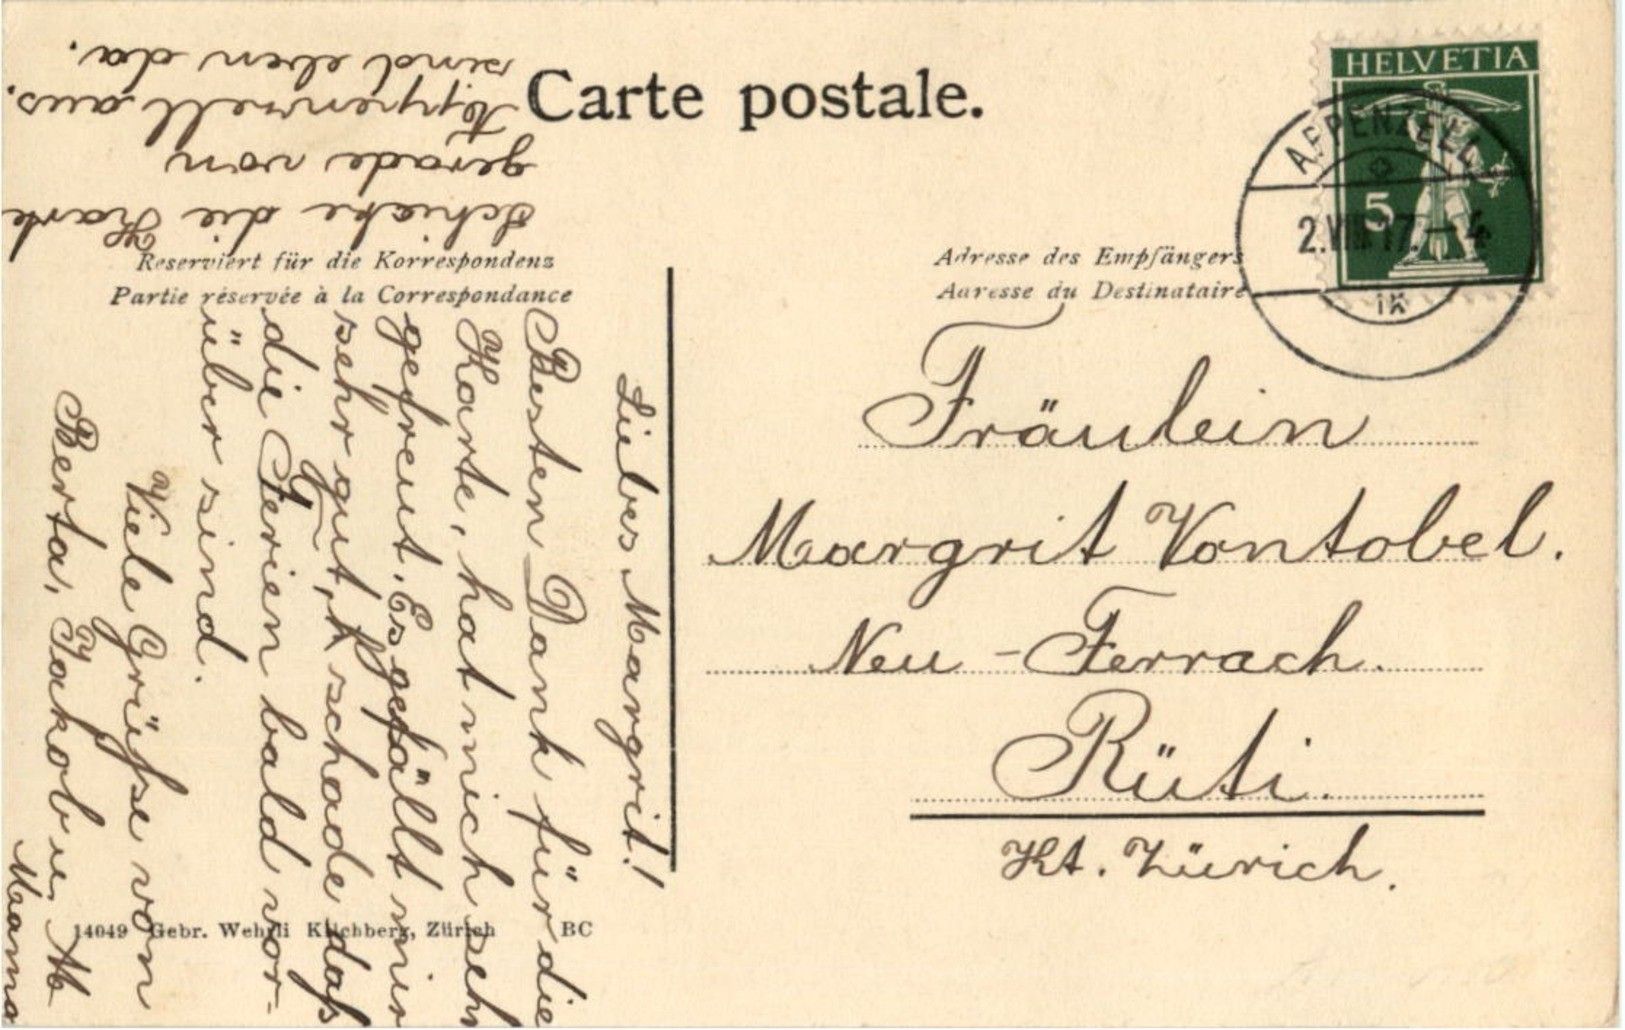 Carte postale.
HELVETIA
5
APPENZELL
2.VIII.17.-4
IX
Reserviert für die Korrespondenz
Partie réservée à la Correspondance
Adresse des Empfängers
Adresse du Destinataire
Fräulein
Margrit Vontobel.
Neu - Ferrach.
Rüti.
Kt. Zürich.
Liebes Margrit!
Besten Dank für die
Karte, hat mich sehr
gefreut. Es gefällt mir
sehr gut, schade daß
die Ferien bald vor-
über sind.
Viele Grüße von
Berta, Jakob u.
Mama
Schicke die Karte
gerade von
Appenzell aus.
sind eben da.
14049 Gebr. Wehrli Kilchberg, Zürich BC